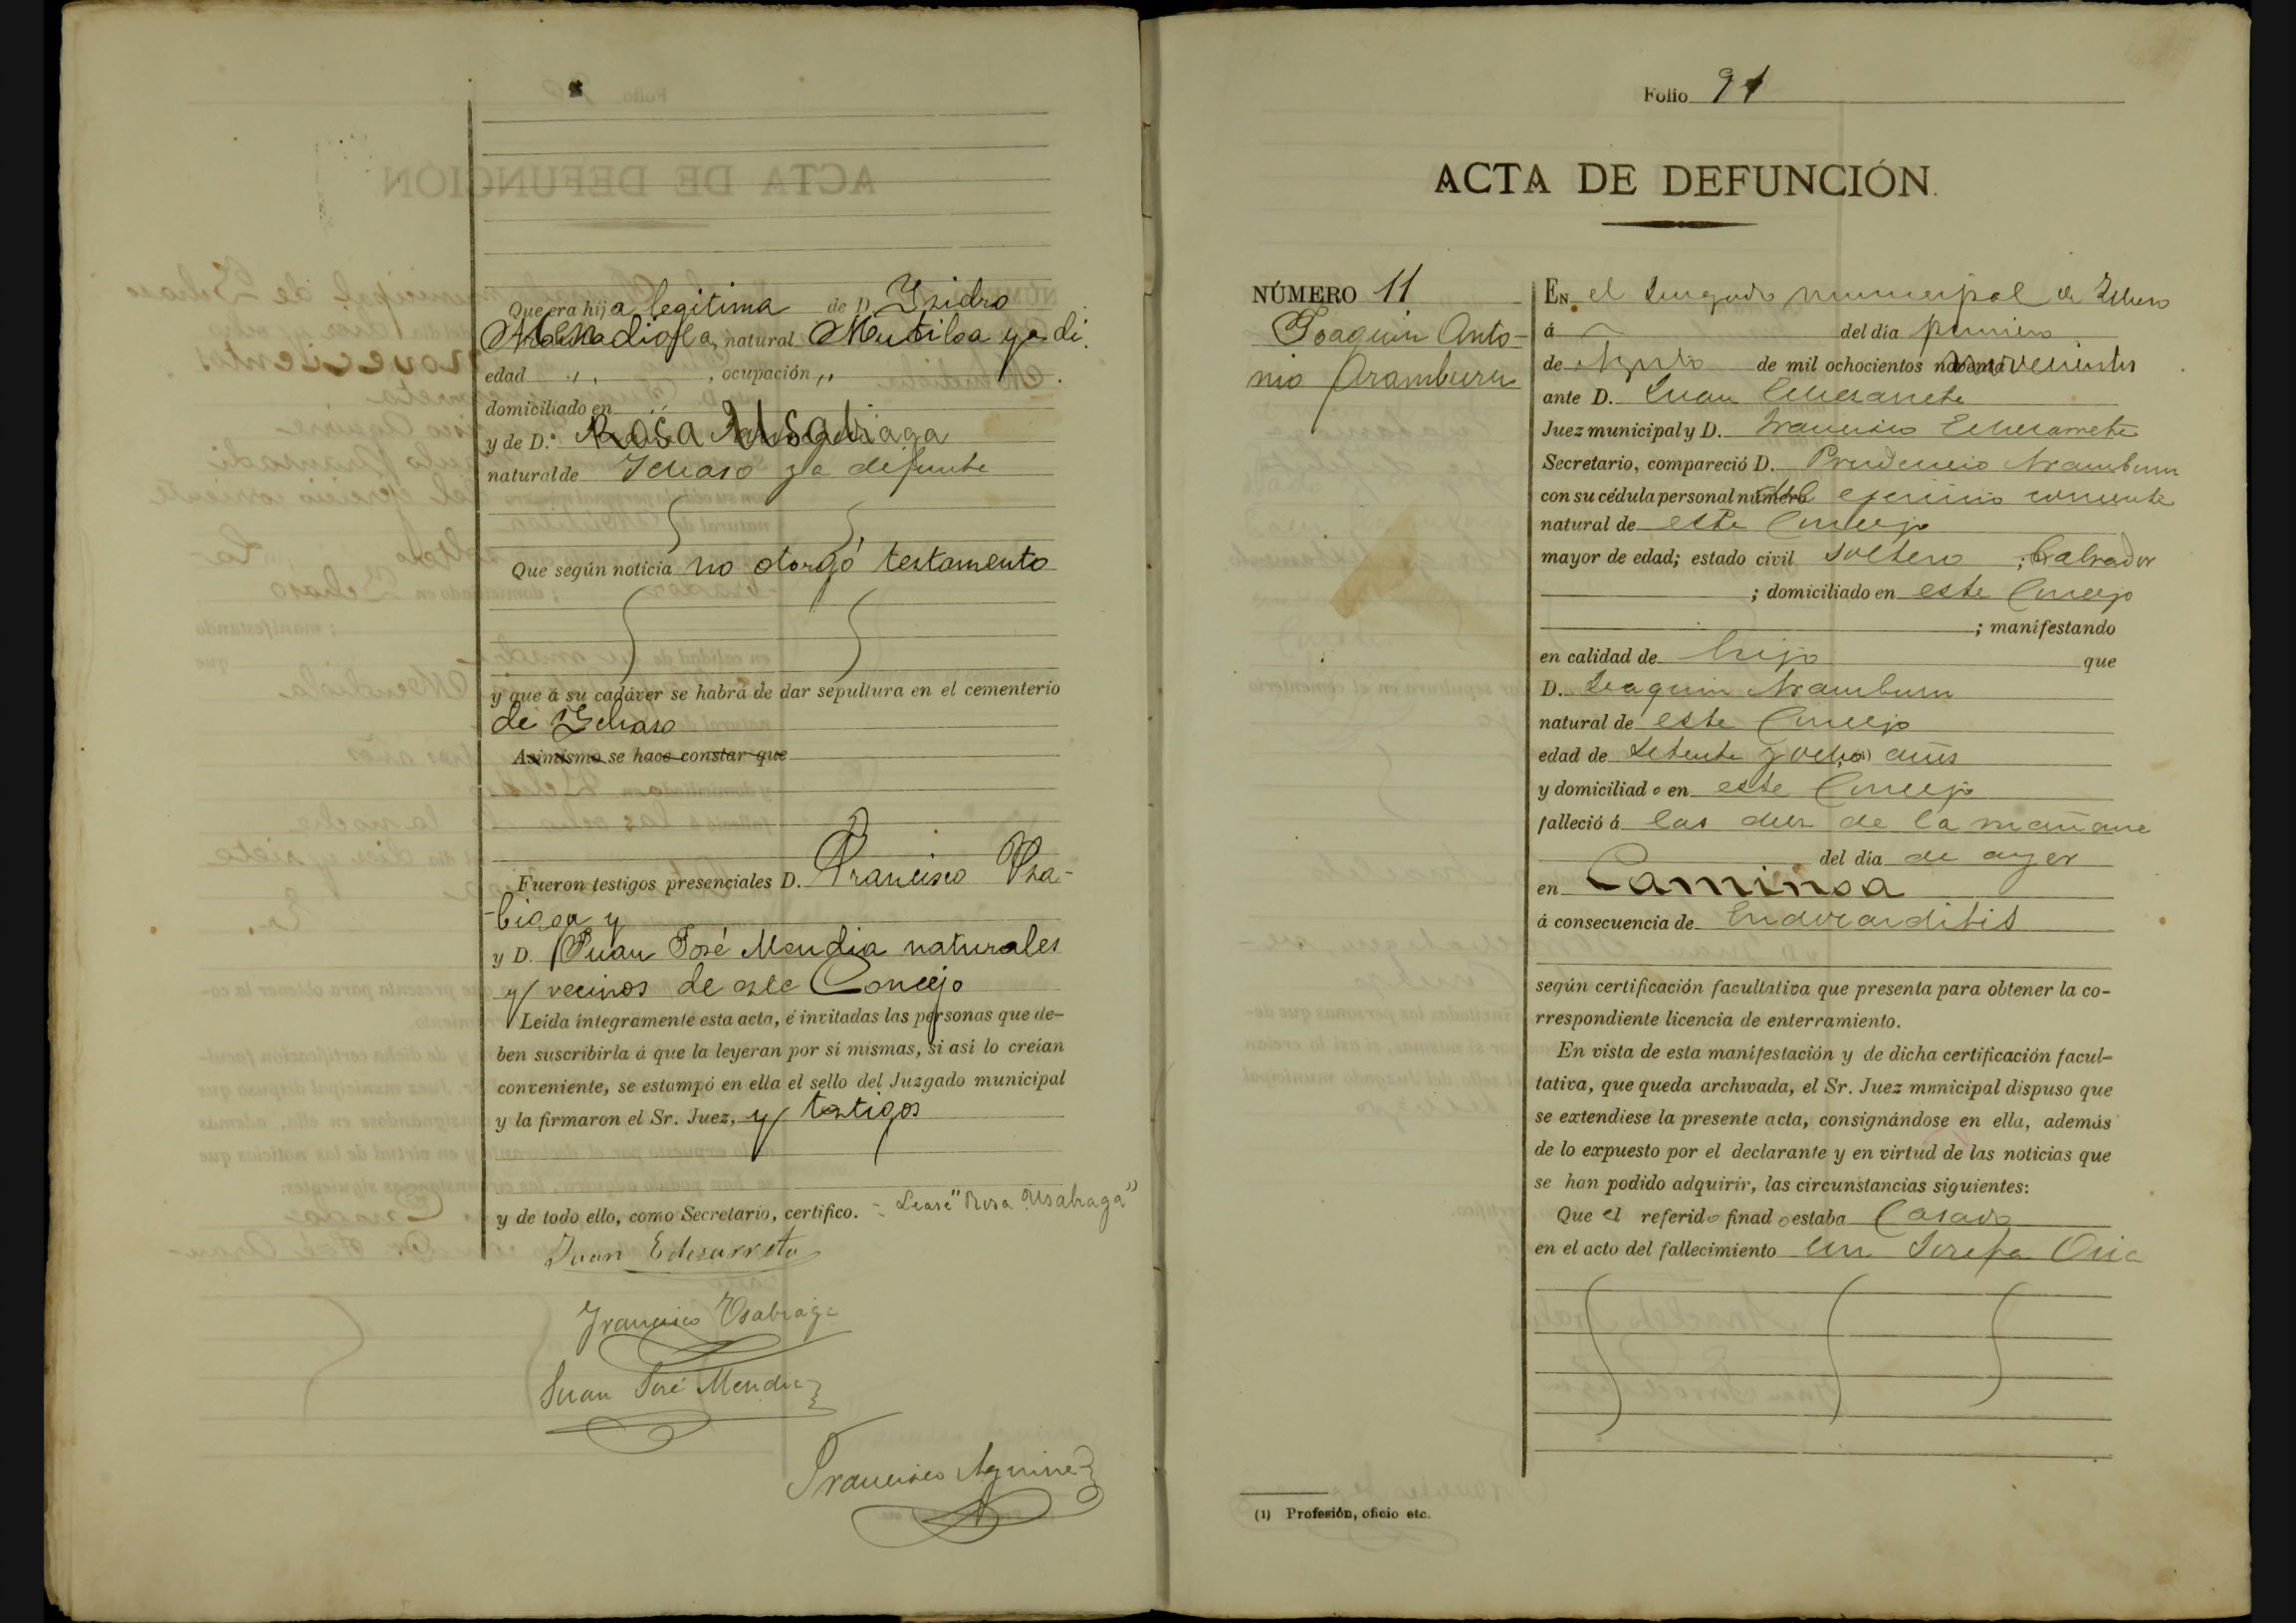 Que era hija legitima de D. Ysidro
Mendiola, natural Mutiloa ya di.
edad ,, , ocupación ,,
domiciliado en ,,
y de D.ª Rosa Usabiaga
natural de Ichaso ya difunta
Que según noticia no otorgó testamento
y que á su cadáver se habrá de dar sepultura en el cementerio
de Ychaso
Asimismo se hace constar que
Fueron testigos presenciales D. Francisco Usa-
-biaga y
y D. Juan José Mendia naturales
y vecinos de este Concejo
Leída íntegramente esta acta, é invitadas las personas que de-
ben suscribirla á que la leyeran por sí mismas, si así lo creían
conveniente, se estampó en ella el sello del Juzgado municipal
y la firmaron el Sr. Juez, y testigos
y de todo ello, como Secretario, certifico. = Lease "Rosa Usabiaga"
Juan Echezarreta
Francisco Usabiaga
Juan José Mendia
Francisco Aguirre
Folio 91
ACTA DE DEFUNCIÓN.
NÚMERO 11
Joaquin Anto-
nio Aramburu
EN el Juzgado municipal de Ichaso
á del día primero
de Agosto de mil ochocientos noventa novecientos
ante D. Juan Echezarreta
Juez municipal y D. Francisco Echezarreta
Secretario, compareció D. Prudencio Aramburu
con su cédula personal número del ejercicio corriente
natural de este Concejo
mayor de edad; estado civil soltero ; labrador
; domiciliado en este Concejo
; manifestando
en calidad de hijo que
D. Joaquin Aramburu
natural de este Concejo
edad de setenta y ocho años
y domiciliado en este Concejo
falleció á las diez de la mañana
del día de ayer
en Caminoa
á consecuencia de Endocarditis
según certificación facultativa que presenta para obtener la co-
rrespondiente licencia de enterramiento.
En vista de esta manifestación y de dicha certificación facul-
tativa, que queda archivada, el Sr. Juez municipal dispuso que
se extendiese la presente acta, consignándose en ella, además
de lo expuesto por el declarante y en virtud de las noticias que
se han podido adquirir, las circunstancias siguientes:
Que el referido finado estaba Casado
en el acto del fallecimiento con Josefa Oria
(1) Profesión, oficio etc.